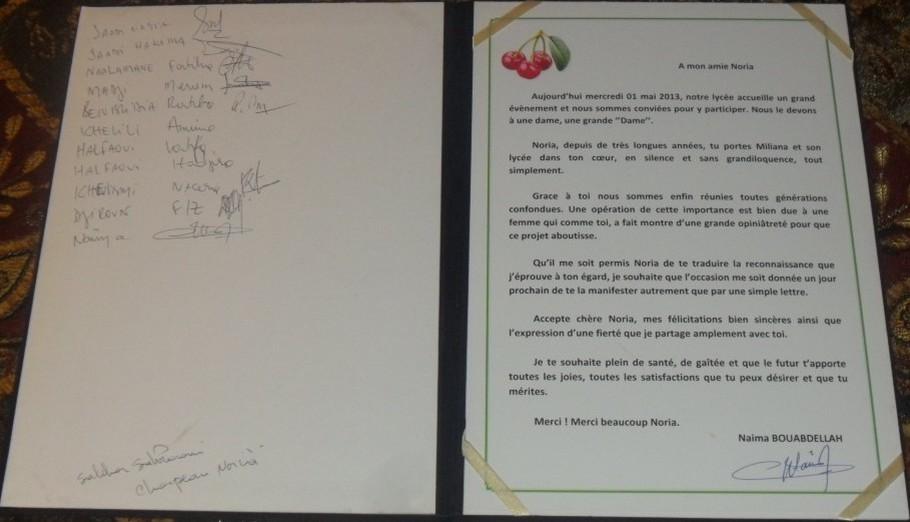 SAADI HAKIMA
NOALAMANE Fatiha
MADJI Meriem
Ratiba
KHELILI Amina
HALFAOUI Latifa
HALFAOUI Hadjira
Nacera
DJIROUN F/Z
Naïma
Chapeau Noria
A mon amie Noria
Aujourd'hui mercredi 01 mai 2013, notre lycée accueille un grand
évènement et nous sommes conviées pour y participer. Nous le devons
à une dame, une grande "Dame".
Noria, depuis de très longues années, tu portes Miliana et son
lycée dans ton cœur, en silence et sans grandiloquence, tout
simplement.
Grace à toi nous sommes enfin réunies toutes générations
confondues. Une opération de cette importance est bien due à une
femme qui comme toi, a fait montre d'une grande opiniâtreté pour que
ce projet aboutisse.
Qu'il me soit permis Noria de te traduire la reconnaissance que
j'éprouve à ton égard, je souhaite que l'occasion me soit donnée un jour
prochain de te la manifester autrement que par une simple lettre.
Accepte chère Noria, mes félicitations bien sincères ainsi que
l'expression d'une fierté que je partage amplement avec toi.
Je te souhaite plein de santé, de gaîtée et que le futur t'apporte
toutes les joies, toutes les satisfactions que tu peux désirer et que tu
mérites.
Merci ! Merci beaucoup Noria.
Naima BOUABDELLAH